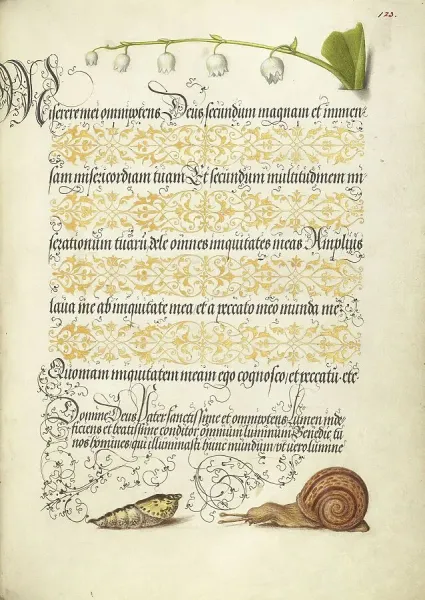 123.
Miserere mei omnipotens Deus secundum magnam et immen-
sam misericordiam tuam Et secundum multitudinem mi-
serationum tuarū dele omnes iniquitates meas Amplius
laua me ab iniquitate mea et a peccato meo munda me
Quoniam iniquitatem meam ego cognosco, et peccatū etc
Domine Deus Pater sanctissime et omnipotens Lumen inde-
ficiens et beatissime conditor omnium luminum Benedic tu
nos homines qui illuminasti hunc mundum vt vero lumine